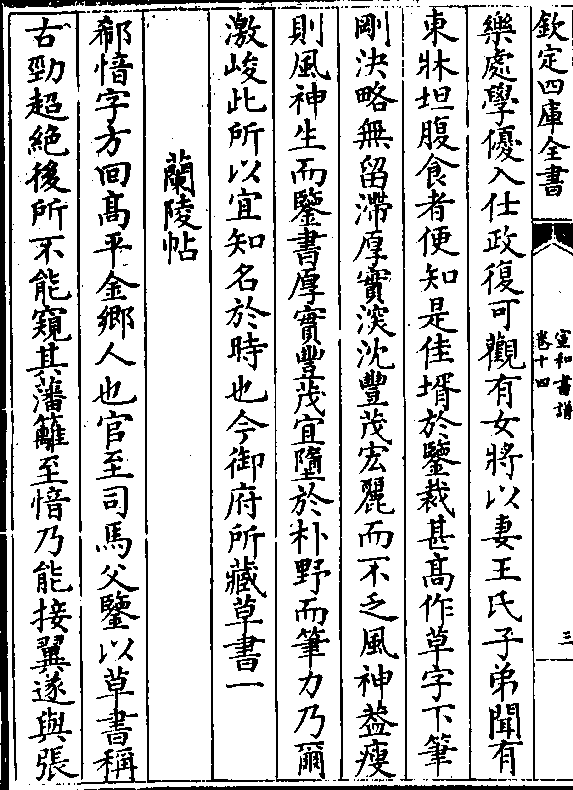 欽定四庫全書
宣和書譜
卷十四
三
樂處學優入仕政復可觀有女將以妻王氏子弟聞有
東牀坦腹食者便知是佳壻於鑒裁甚髙作草字下筆
剛決略無留滯厚實深沈豐茂宏麗而不乏風神葢瘦
則風神生而鑒書厚實豐茂宜墮於朴野而筆力乃爾
激峻此所以宜知名於時也今御府所藏草書一
蘭陵帖
郗愔字方回髙平金鄉人也官至司馬父鑒以草書稱
古勁超絶後所不能窺其藩籬至愔乃能接翼遂與張